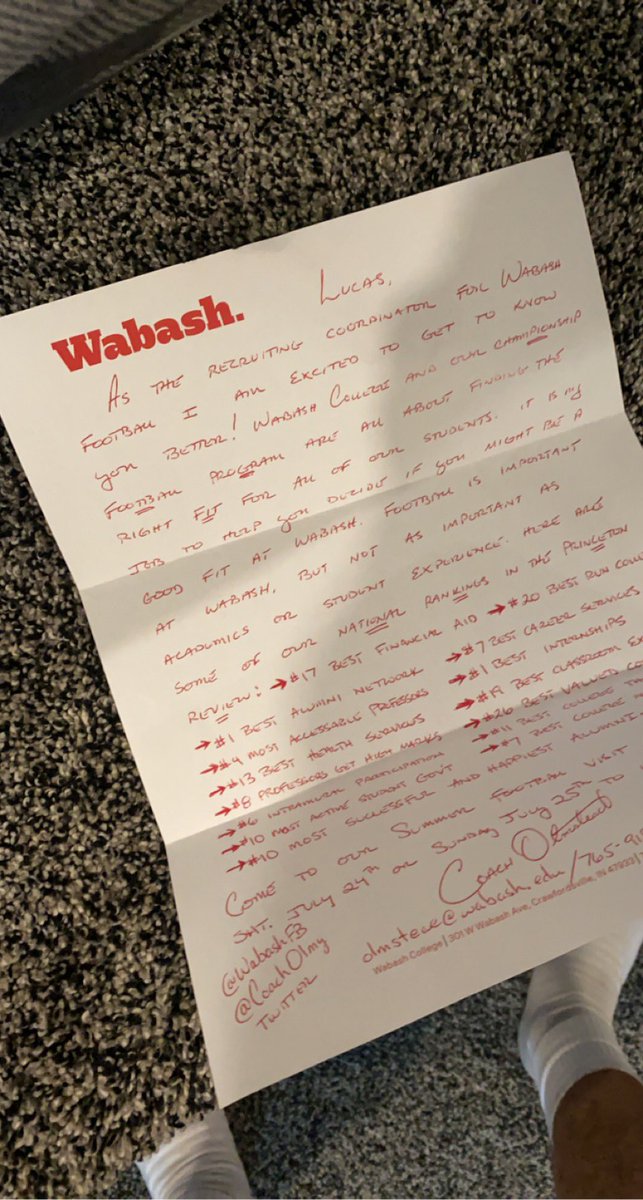 Wabash.
LUCAS,
AS THE RECRUITING COORDINATOR FOR WABASH
FOOTBALL I AM EXCITED TO GET TO KNOW
YOU BETTER! WABASH COLLEGE AND OUR CHAMPIONSHIP
FOOTBALL PROGRAM ARE ALL ABOUT FINDING THE
RIGHT FIT FOR ALL OF OUR STUDENTS. IT IS MY
JOB TO HELP YOU DECIDE IF YOU MIGHT BE A
GOOD FIT AT WABASH. FOOTBALL IS IMPORTANT
AT WABASH, BUT NOT AS IMPORTANT AS
ACADEMICS OR STUDENT EXPERIENCE. HERE ARE
SOME OF OUR NATIONAL RANKINGS IN THE PRINCETON
REVIEW: → #17 BEST FINANCIAL AID → #20 BEST RUN
→ #1 BEST ALUMNI NETWORK → #7 BEST CAREER SERVICES
→ #4 MOST ACCESSABLE PROFESSORS → #1 BEST INTERNSHIPS
→ #13 BEST HEALTH SERVICES → #19 BEST CLASSROOM
→ #8 PROFESSORS GET HIGH MARKS → #26 BEST VALUED
→ #6 INTRAMURAL PARTICIPATION → #11 BEST COLLEGE
→ #10 MOST ACTIVE STUDENT GOV'T → #7 BEST COLLEGE
→ #10 MOST SUCCESSFUL AND HAPPIEST ALUMNI
COME TO OUR SUMMER FOOTBALL VISIT
SAT. JULY 24TH OR SUNDAY JULY 25TH TO
Coach Olmstead
@WabashFB
olmstece@wabash.edu/765-
@CoachOlmy
TWITTER
Wabash College | 301 W Wabash Ave, Crawfordsville, IN 47933 |